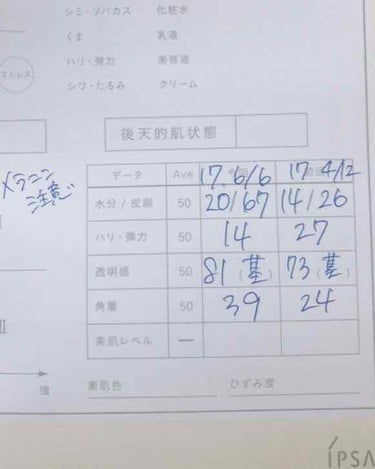 シミ・ソバカス 化粧水
くま 乳液
ストレス
ハリ・弾力 美容液
シワ・たるみ クリーム
後天的肌状態
メラニン
注意
データ Ave 17. 6/6 17. 4/12
水分/皮脂 50 20/67 14/26
ハリ・弾力 50 14 27
透明感 50 81(基) 73(基)
角層 50 39 24
美肌レベル —
強
素肌色 ひずみ度
IPSA